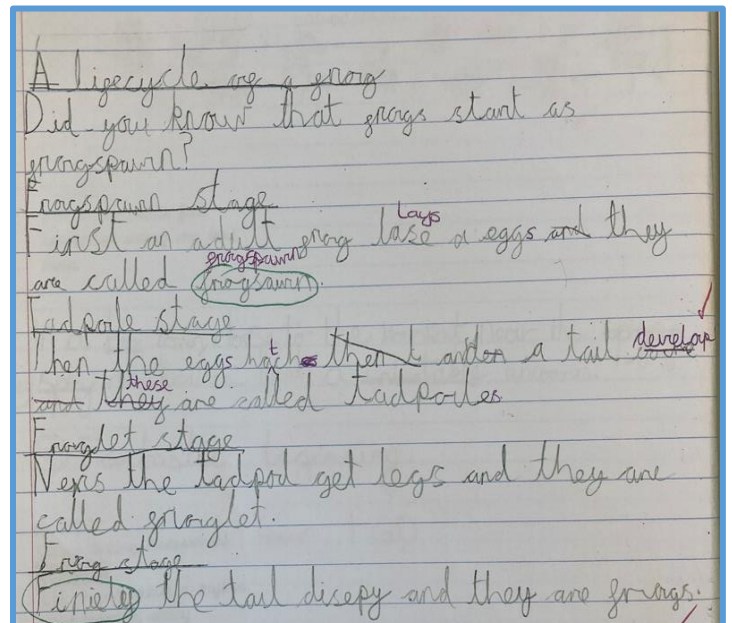 A lifecycle of a frog
Did you know that frogs start as
frogspawn?
Frogspawn stage
lays
First an adult frog lase a eggs and they
frogspawn
are called frogsawn.
Tadpole stage
develop
Then the eggs hatch and a tail
these
and they are called tadpoles
Froglet stage
Nexs the tadpol get legs and they are
called froglet.
Frog stage
Finieley the tail disepy and they are frogs.